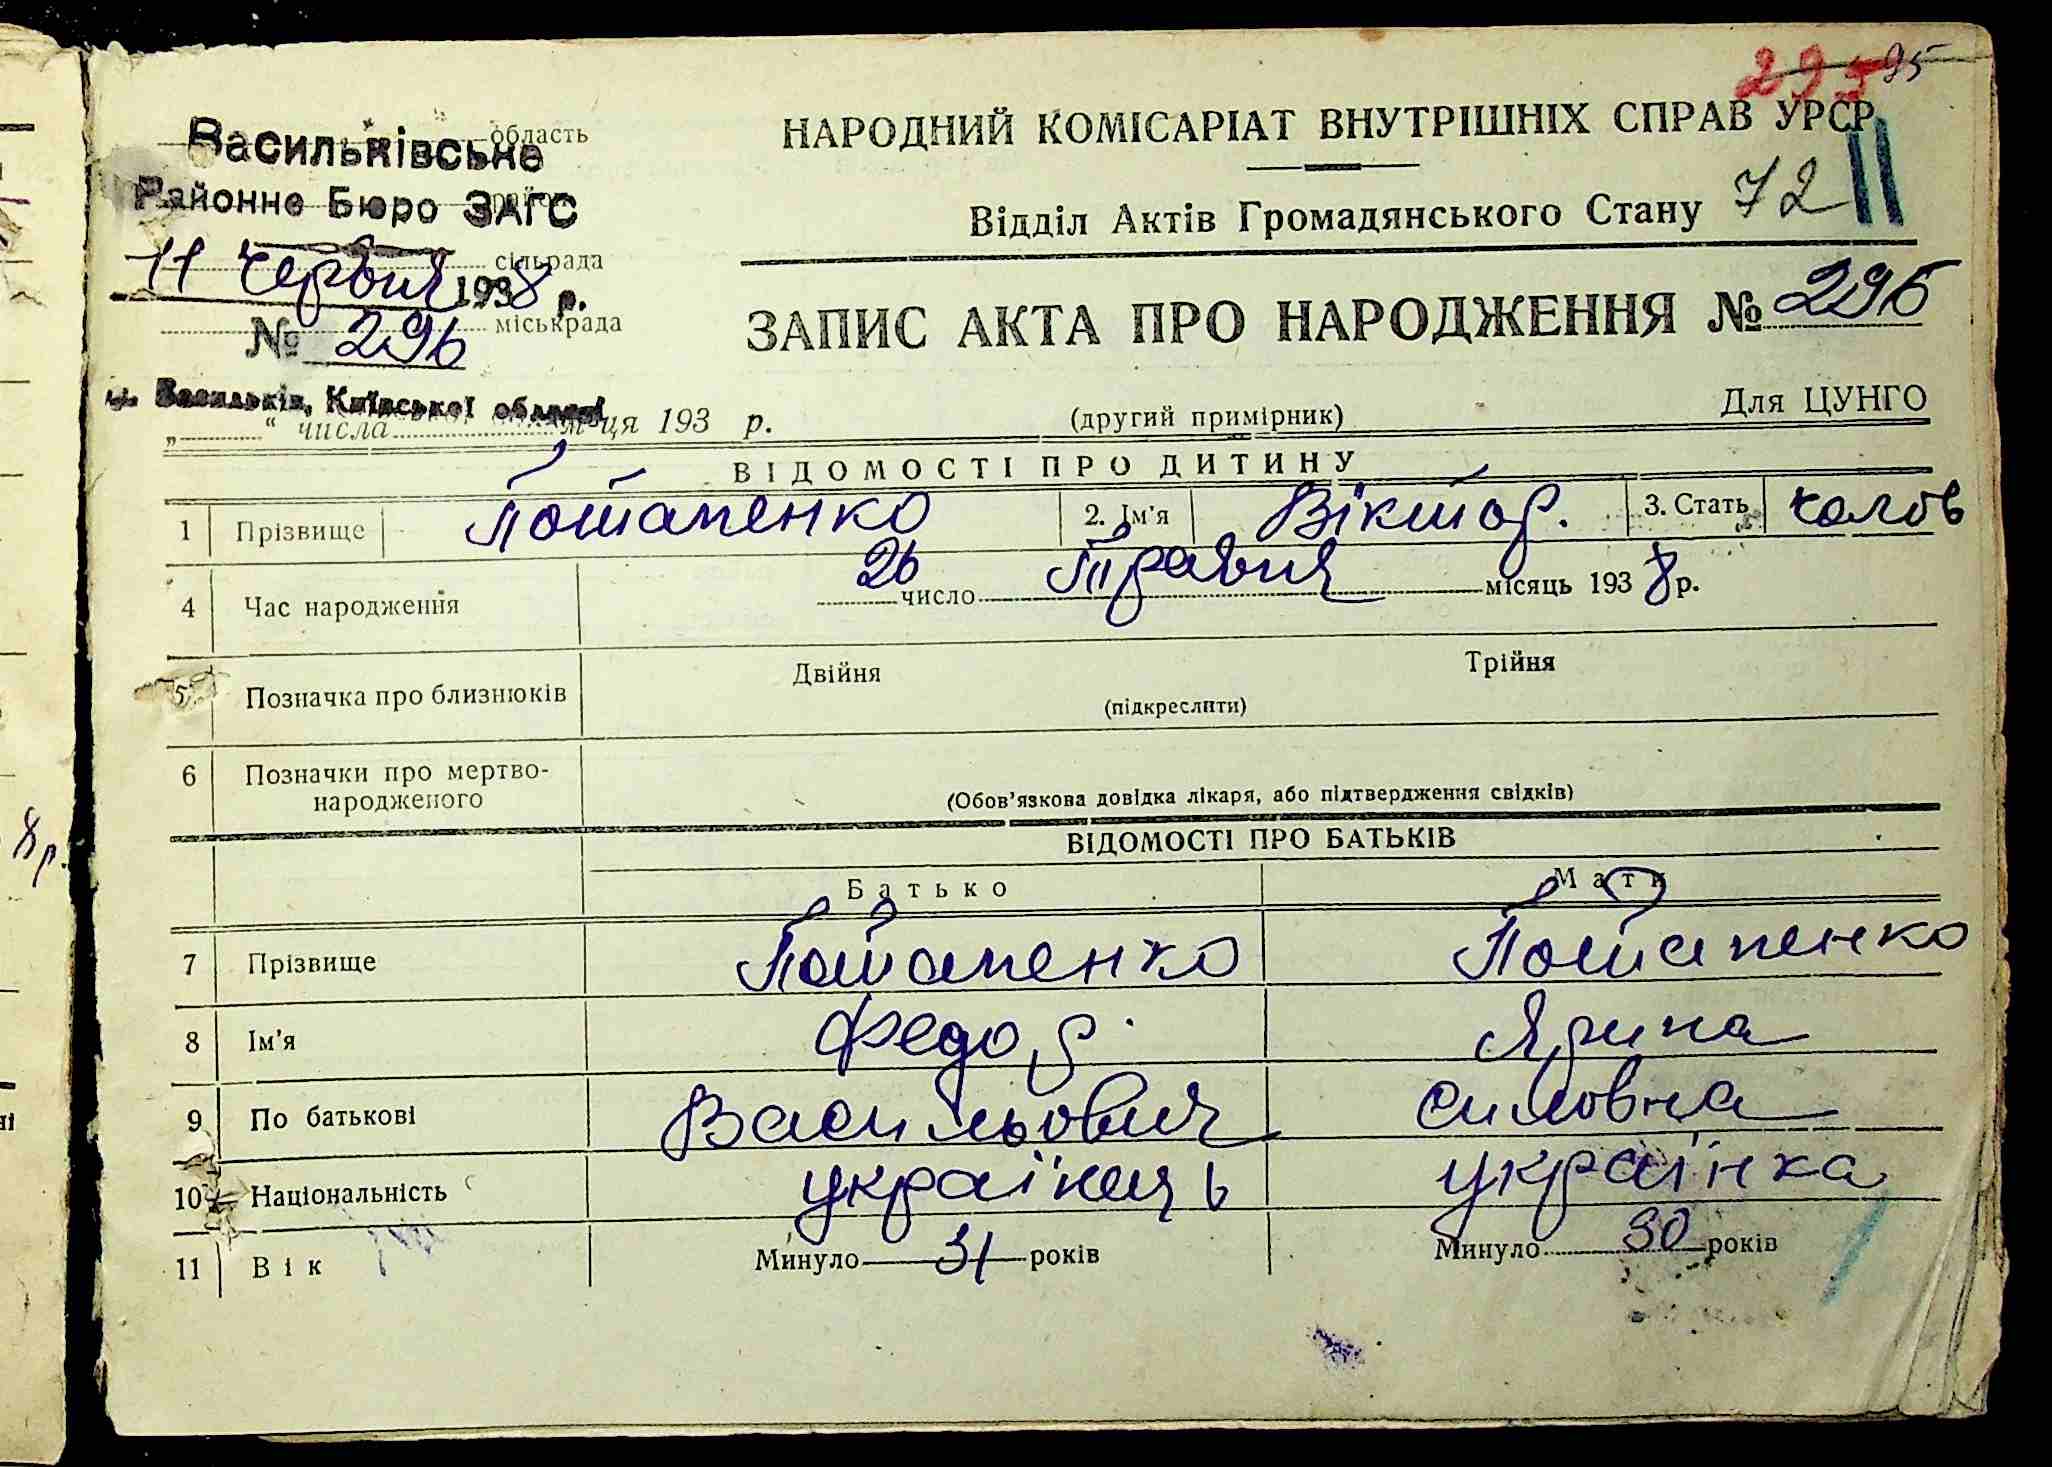 95
НАРОДНИЙ КОМІСАРІАТ ВНУТРІШНІХ СПРАВ УРСР
Відділ Актів Громадянського Стану 72
область
Васильківське
Районне Бюро ЗАГС
сільрада
11 Червня 1938 р.
міськрада
№ 296
м. Васильків, Київської області
„ “ числа м-ця 193 р.
ЗАПИС АКТА ПРО НАРОДЖЕННЯ № 296
(другий примірник) Для ЦУНГО
ВІДОМОСТІ ПРО ДИТИНУ
1 Прізвище Потапенко 2. Ім'я Віктор. 3. Стать чолов
4 Час народження 26 число Травня місяць 1938 р.
5 Позначка про близнюків Двійня Трійня
(підкреслити)
6 Позначки про мертво-
народженого (Обов'язкова довідка лікаря, або підтвердження свідків)
ВІДОМОСТІ ПРО БАТЬКІВ
Батько Мати
7 Прізвище Потапенко Потапенко
8 Ім'я Федор. Ярина
9 По батькові Васильович Симовна
10 Національність українець українка
11 Вік Минуло 31 років Минуло 30 років
8 р.